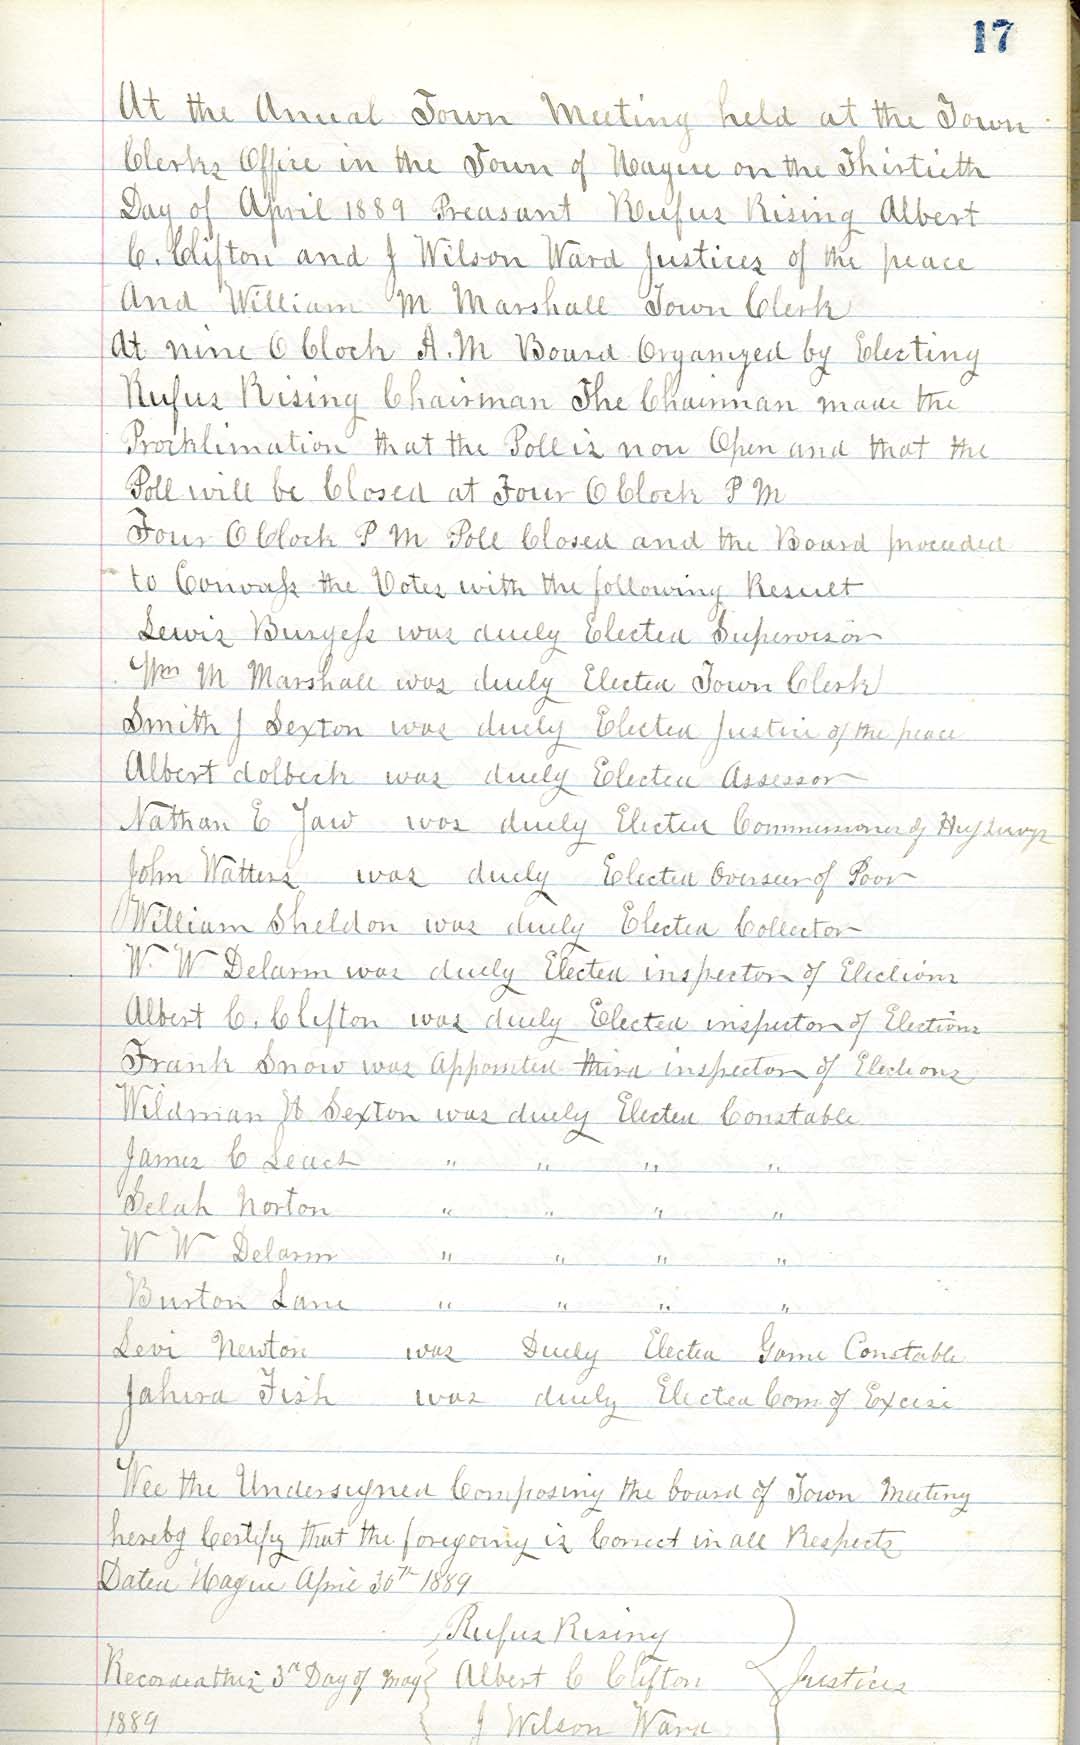 17
At the Anual Town Meeting held at the Town
Clerks Office in the Town of Hague on the Thirtieth
Day of April 1889 Preasant Rufus Rising Albert
C. Clifton and J Wilson Ward Justices of the peace
And William M Marshall Town Clerk
At nine O Clock A.M Board Organized by Electing
Rufus Rising Chairman The Chairman made the
Procklimation that the Poll is now Open and that the
Poll will be Closed at Four O Clock P M
Four O Clock P M Poll Closed and the Board proceeded
to Convass the Votes with the following Result
Lewis Burgess was duely Elected Supervisor
Wm M Marshall was duely Elected Town Clerk
Smith J Sexton was duely Elected Justice of the peace
Albert dolbeck was duely Elected Assessor
Nathan E Yaw was duely Elected Commissioner of
John Watters was duely Elected Overseer of Poor
William Sheldon was duely Elected Collector
W. W Delarm was duely Elected inspector of Elections
Albert C. Clifton was duely Elected inspector of Elections
Frank Snow was Appointed third inspector of Elections
Wildman H Sexton was duely Elected Constable
James C Leach " " " "
Selah Norton " " " "
W W Delarm " " " "
Burton Lane " " " "
Levi Newton was Duely Elected Game Constable
Fish was duely Elected Com. of Excise
Wee the Undersigned Composing the board of Town Meeting
hereby Certify that the foregoing is Correct in all Respects
Dated Hague April 30th 1889
Rufus Rising
Recorded this 3rd Day of May Albert C Clifton Justices
1889 J Wilson Ward